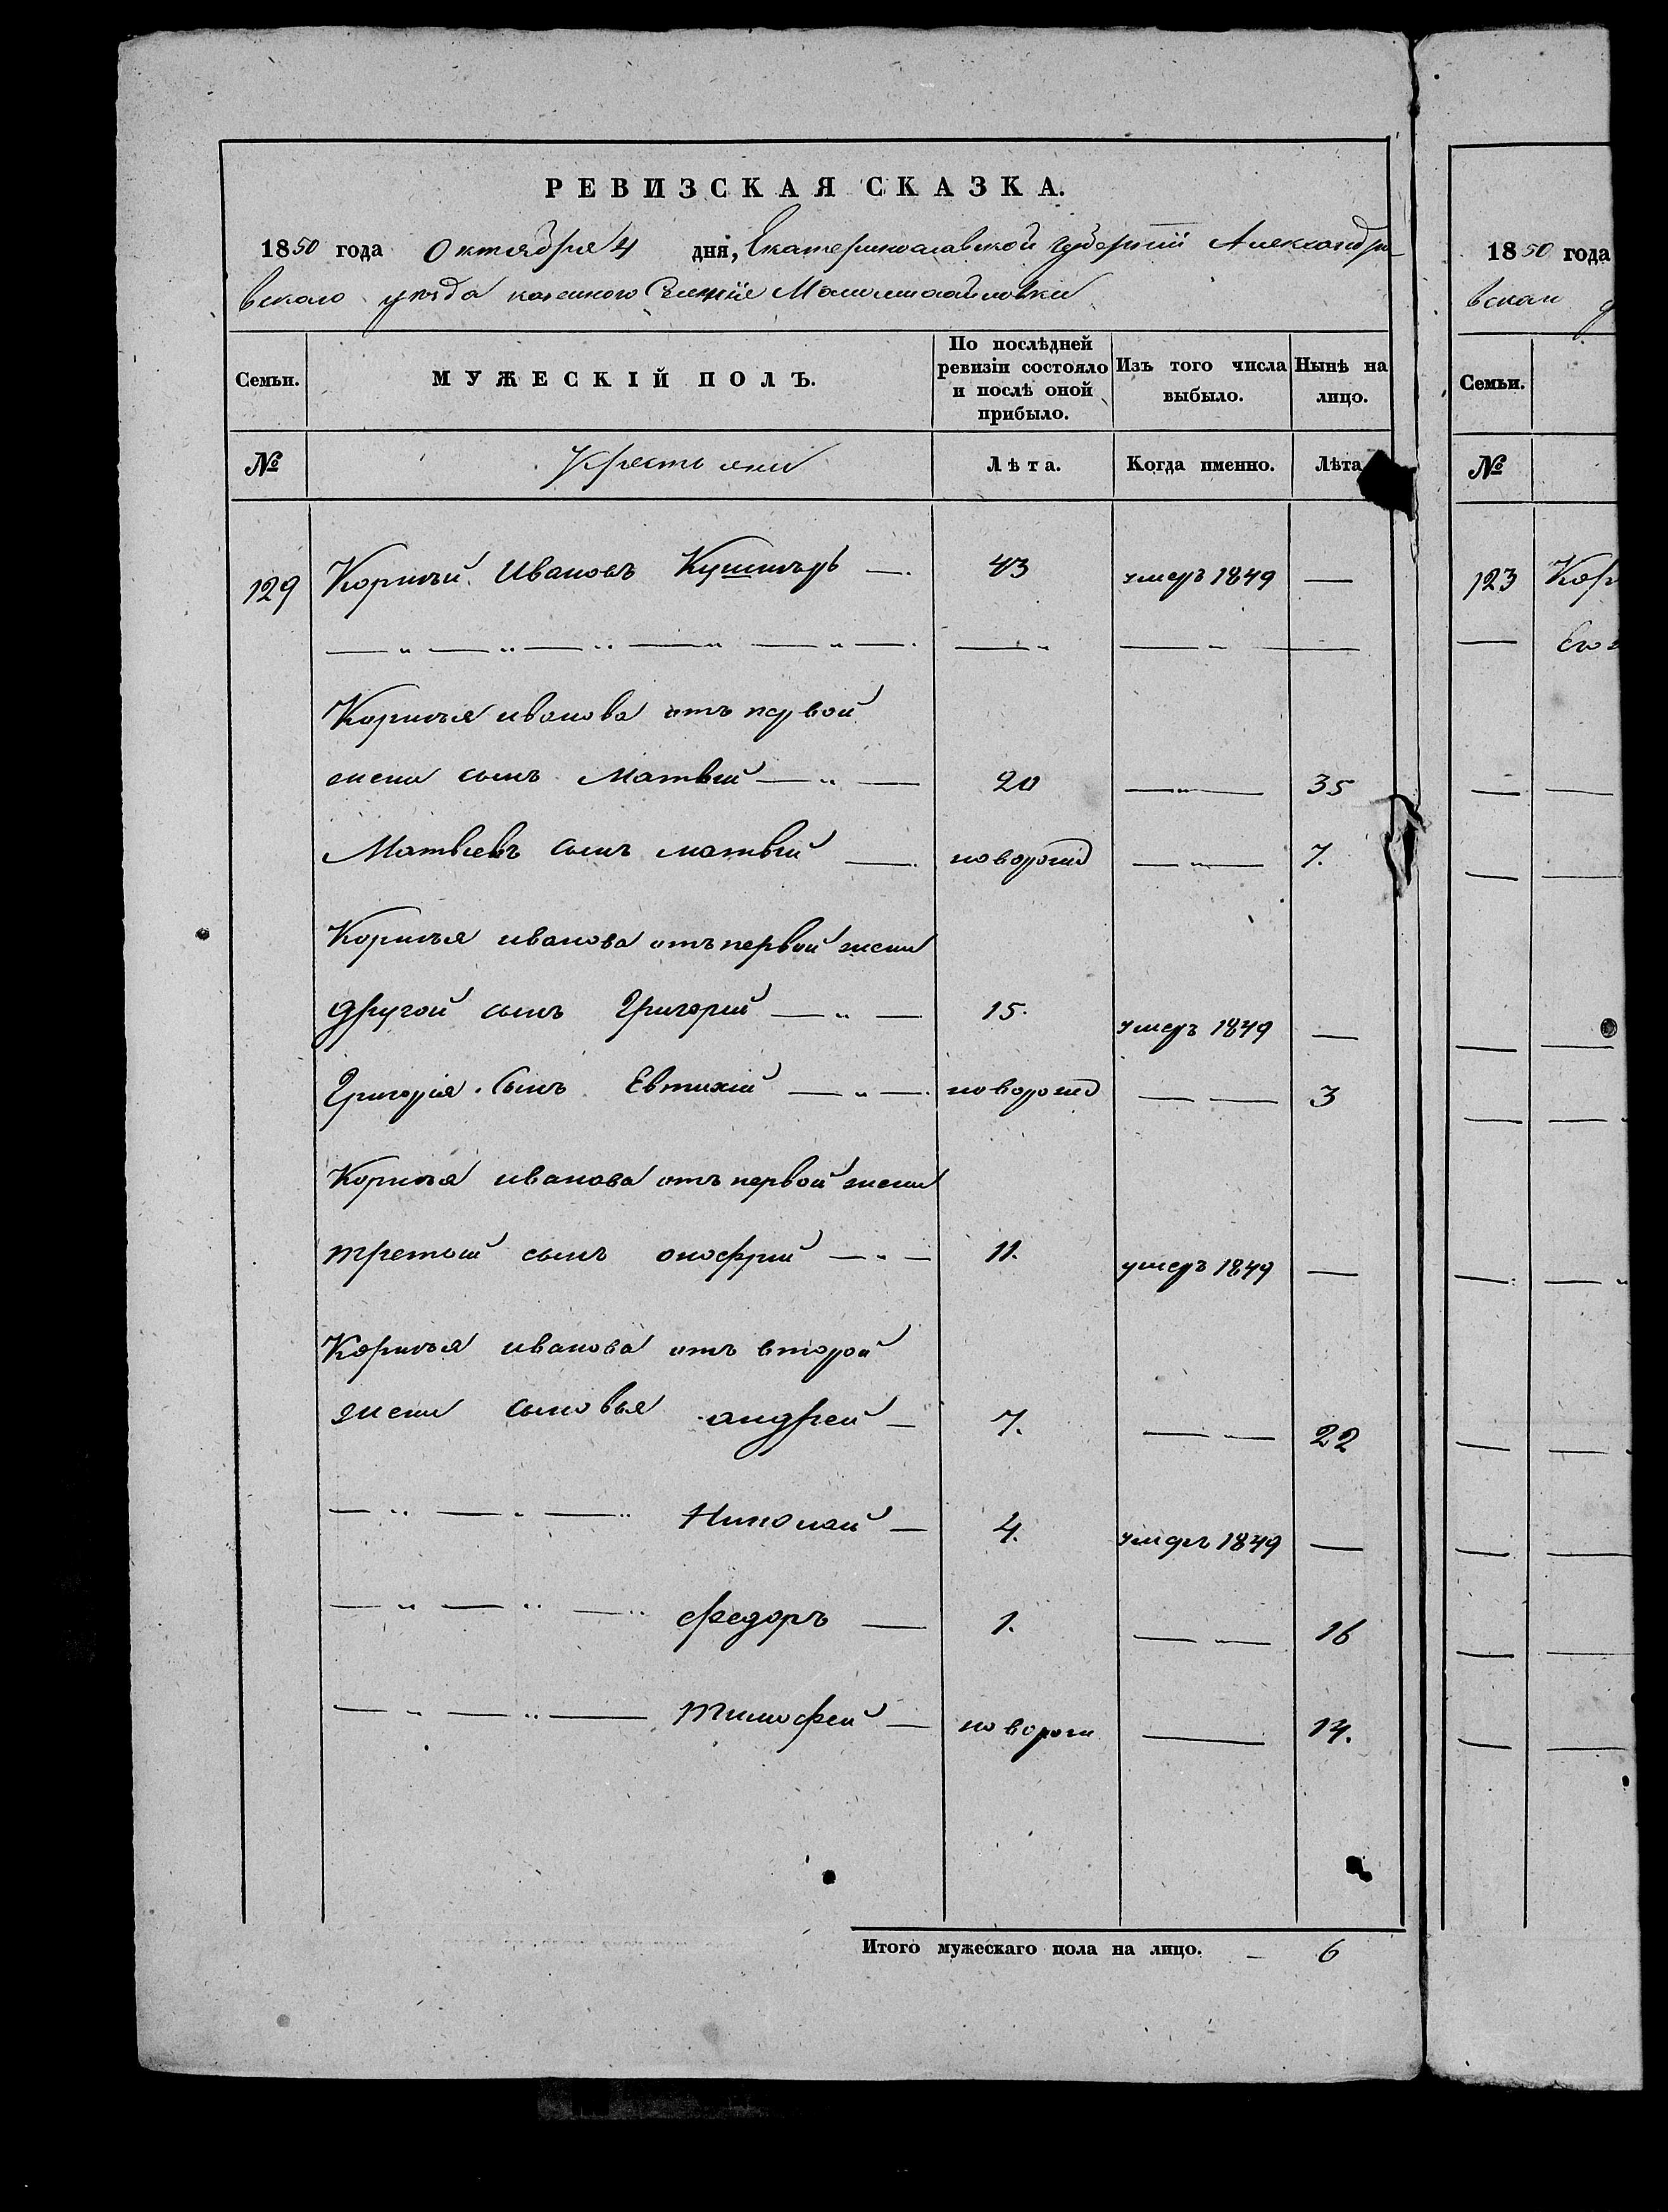 РЕВИЗСКАЯ СКАЗКА.
1850 года Октября 4 дня, Екатеринославской губерніи Александро-
вскаго уезда казеннаго Селенія Маломихайловки
Семьи.
МУЖЕСКІЙ ПОЛЪ.
По послѣдней ревизіи состояло и послѣ оной прибыло.
Изъ того числа выбыло.
Нынѣ на лицо.
№ Крестьяни Лѣта. Когда именно. Лѣта
129 Корнѣй Ивановъ 43 умеръ 1849 —
Корнѣя иванова отъ первой
жены сынъ Матвѣй — " — 20 — " — 35
Матвѣевъ сынъ матвѣй — новорожд — " — 7.
Корнѣя иванова отъ первой жены
другой сынъ Григорій — " — 15. умеръ 1849 —
Григорія Сынъ Евтихій — " — новорожд — — 3
Корнѣя иванова отъ первой жены
третий сынъ онофрий — " — 11. умеръ 1849 —
Корнѣя иванова отъ второй
жены сыновья андрей — 7. — — 22
— " — " — " Николай — 4. умеръ 1849 —
— " — " — " федоръ — 1. — — 16
— " — " — тимофей — новорож — 14.
Итого мужескаго пола на лицо. — 6
1850 года
вскаго
Семьи.
№
123 Кор
Его